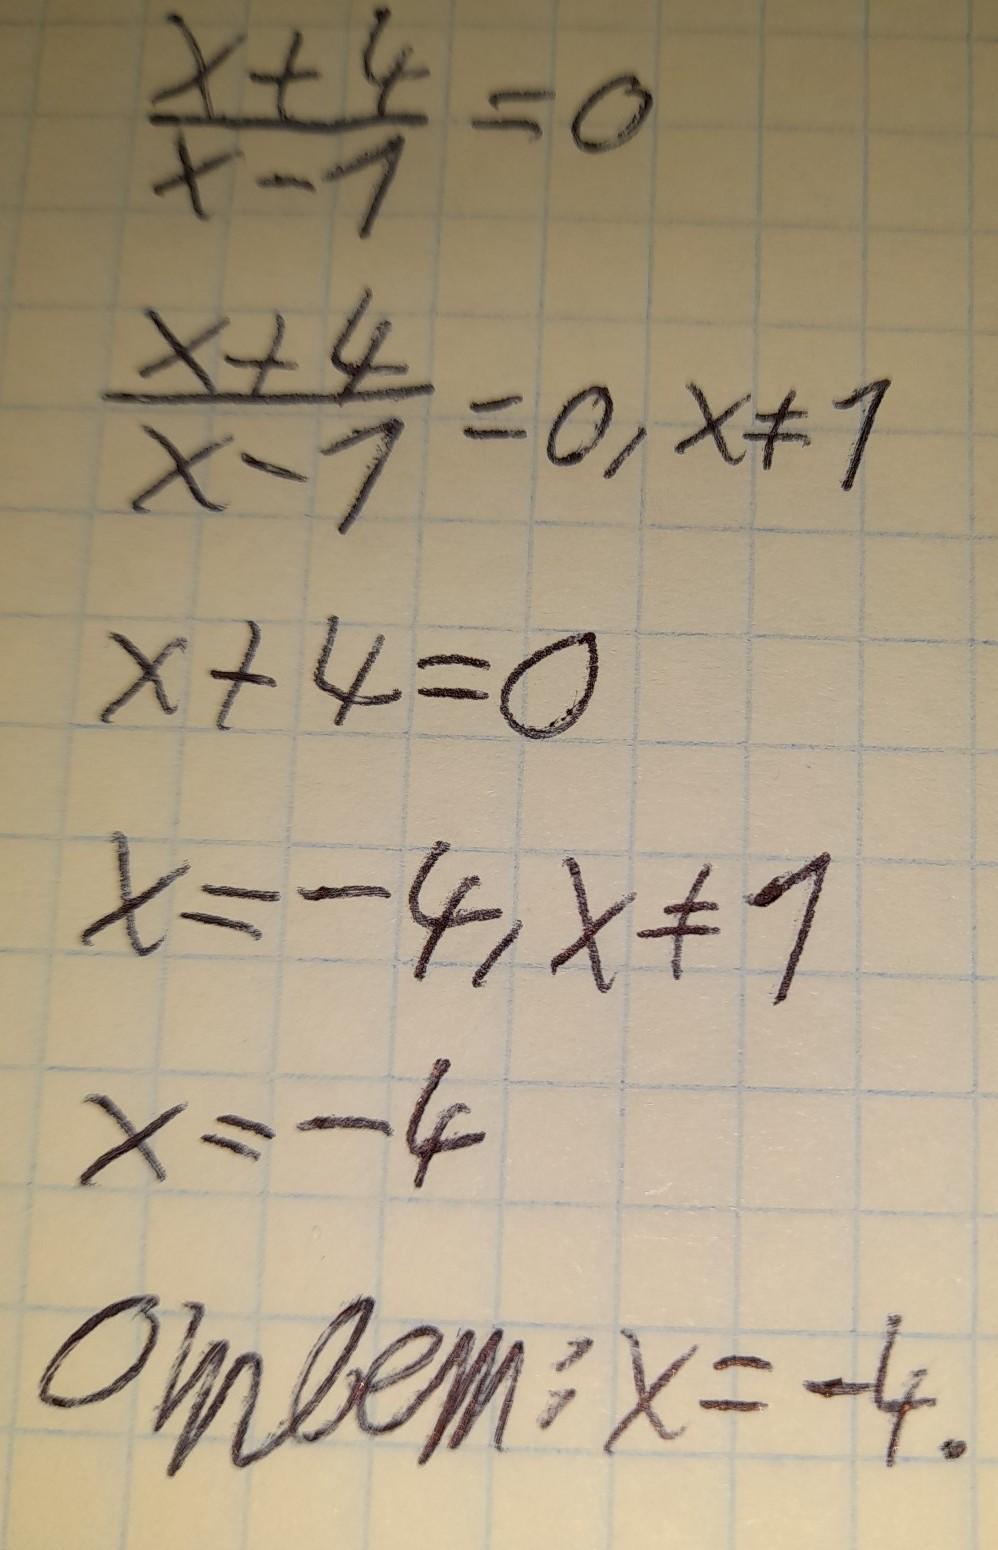 x+4/x-1 =0
x+4/x-1 =0, x≠1
x+4=0
x=-4, x≠1
x=-4
Ответ: x=-4.